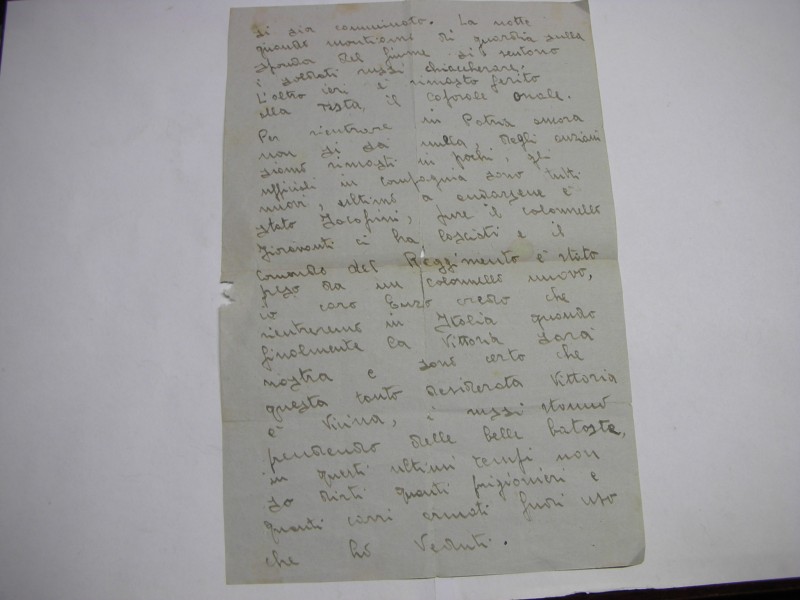 si sia comuinato. La notte
quando montiamo di guardia sulla
sponda del fiume si sentono
i soldati russi chiaccherare.
L'altro ieri è rimasto ferito
alla testa, il caporale Onale.
Per rientrare in Patria ancora
non si sa nulla, degli anziani
siamo rimasti in pochi, gli
ufficiali in compagnia sono tutti
nuovi, ultimo a andarsene è
stato Jacopini, pure il colonnello
Fioravanti ci ha lasciati e il
Comando del Reggimento è stato
preso da un colonnello nuovo,
io caro Enzo credo che
rientreremo in Italia quando
finalmente la Vittoria sarà
nostra e sono certo che
questa tanto desiderata Vittoria
è vicina, i russi stanno
prendendo delle belle batoste,
in questi ultimi tempi non
so dirti quanti prigionieri e
quanti carri armati fuori uso
che hò veduti.